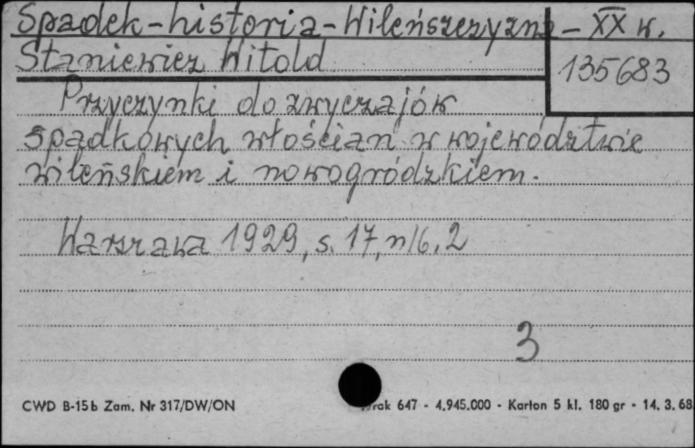 Spadek-historia-Wileńszczyzna - XX w.
Staniewicz Witold
135683
Przyczynki do zwyczajów
spadkowych włościan w województwie
wileńskiem i nowogródzkiem.
Warszawa 1929, s. 17, nlb. 2
3
CWD B-15b Zam. Nr 317/DW/ON
rak 647 - 4.945.000 - Karton 5 kl. 180 gr - 14. 3. 68